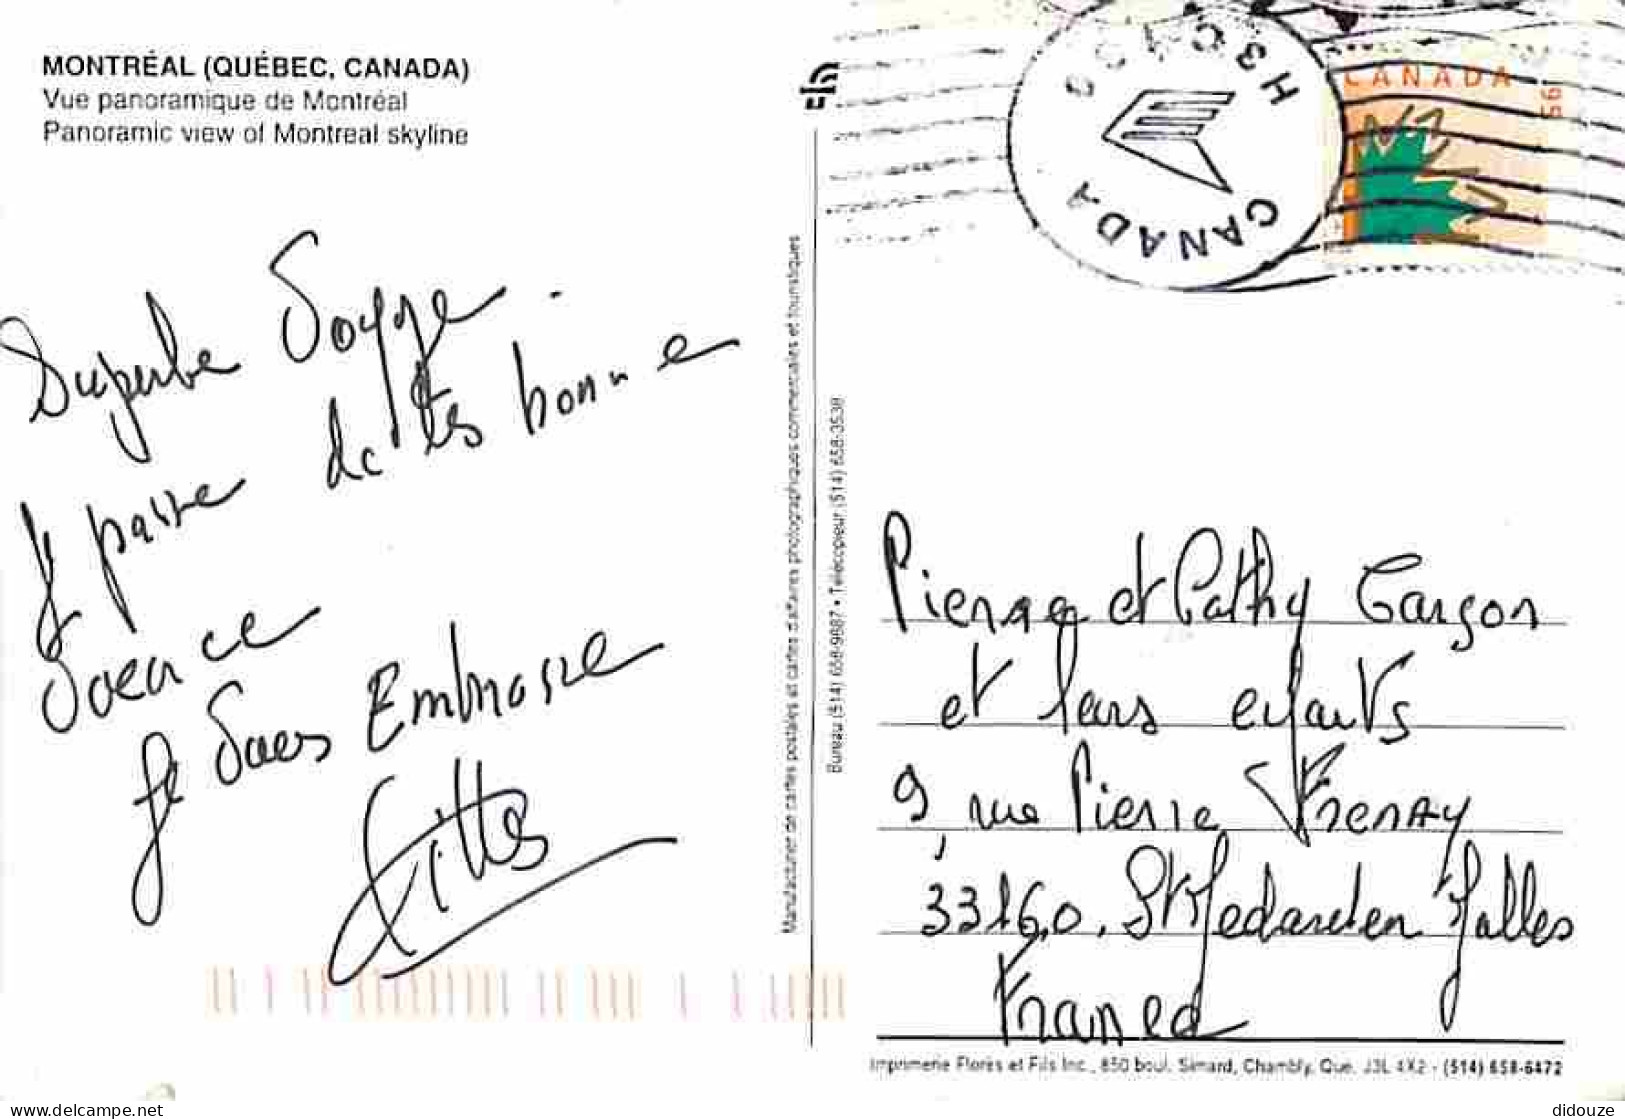 MONTRÉAL (QUÉBEC, CANADA)
Vue panoramique de Montréal
Panoramic view of Montreal skyline
Superbe Voyage.
Je passe de tes bonne
Je Vous Embrasse
Gilles
Manufacturier de cartes postales et cartes d'affaires photographiques commerciales et touristiques
Bureau (514) 658-9687 • Télécopieur (514) 658-3538
H3C
CANADA
CANADA
Pierre et Cathy Garçon
et leurs enfants
9, rue Pierre Frenay
33160. St Medard en Jalles
France
Imprimerie Flores et Fils Inc., 850 boul. Simard, Chambly, Que. J3L 4X2 - (514) 658-6472
didouze